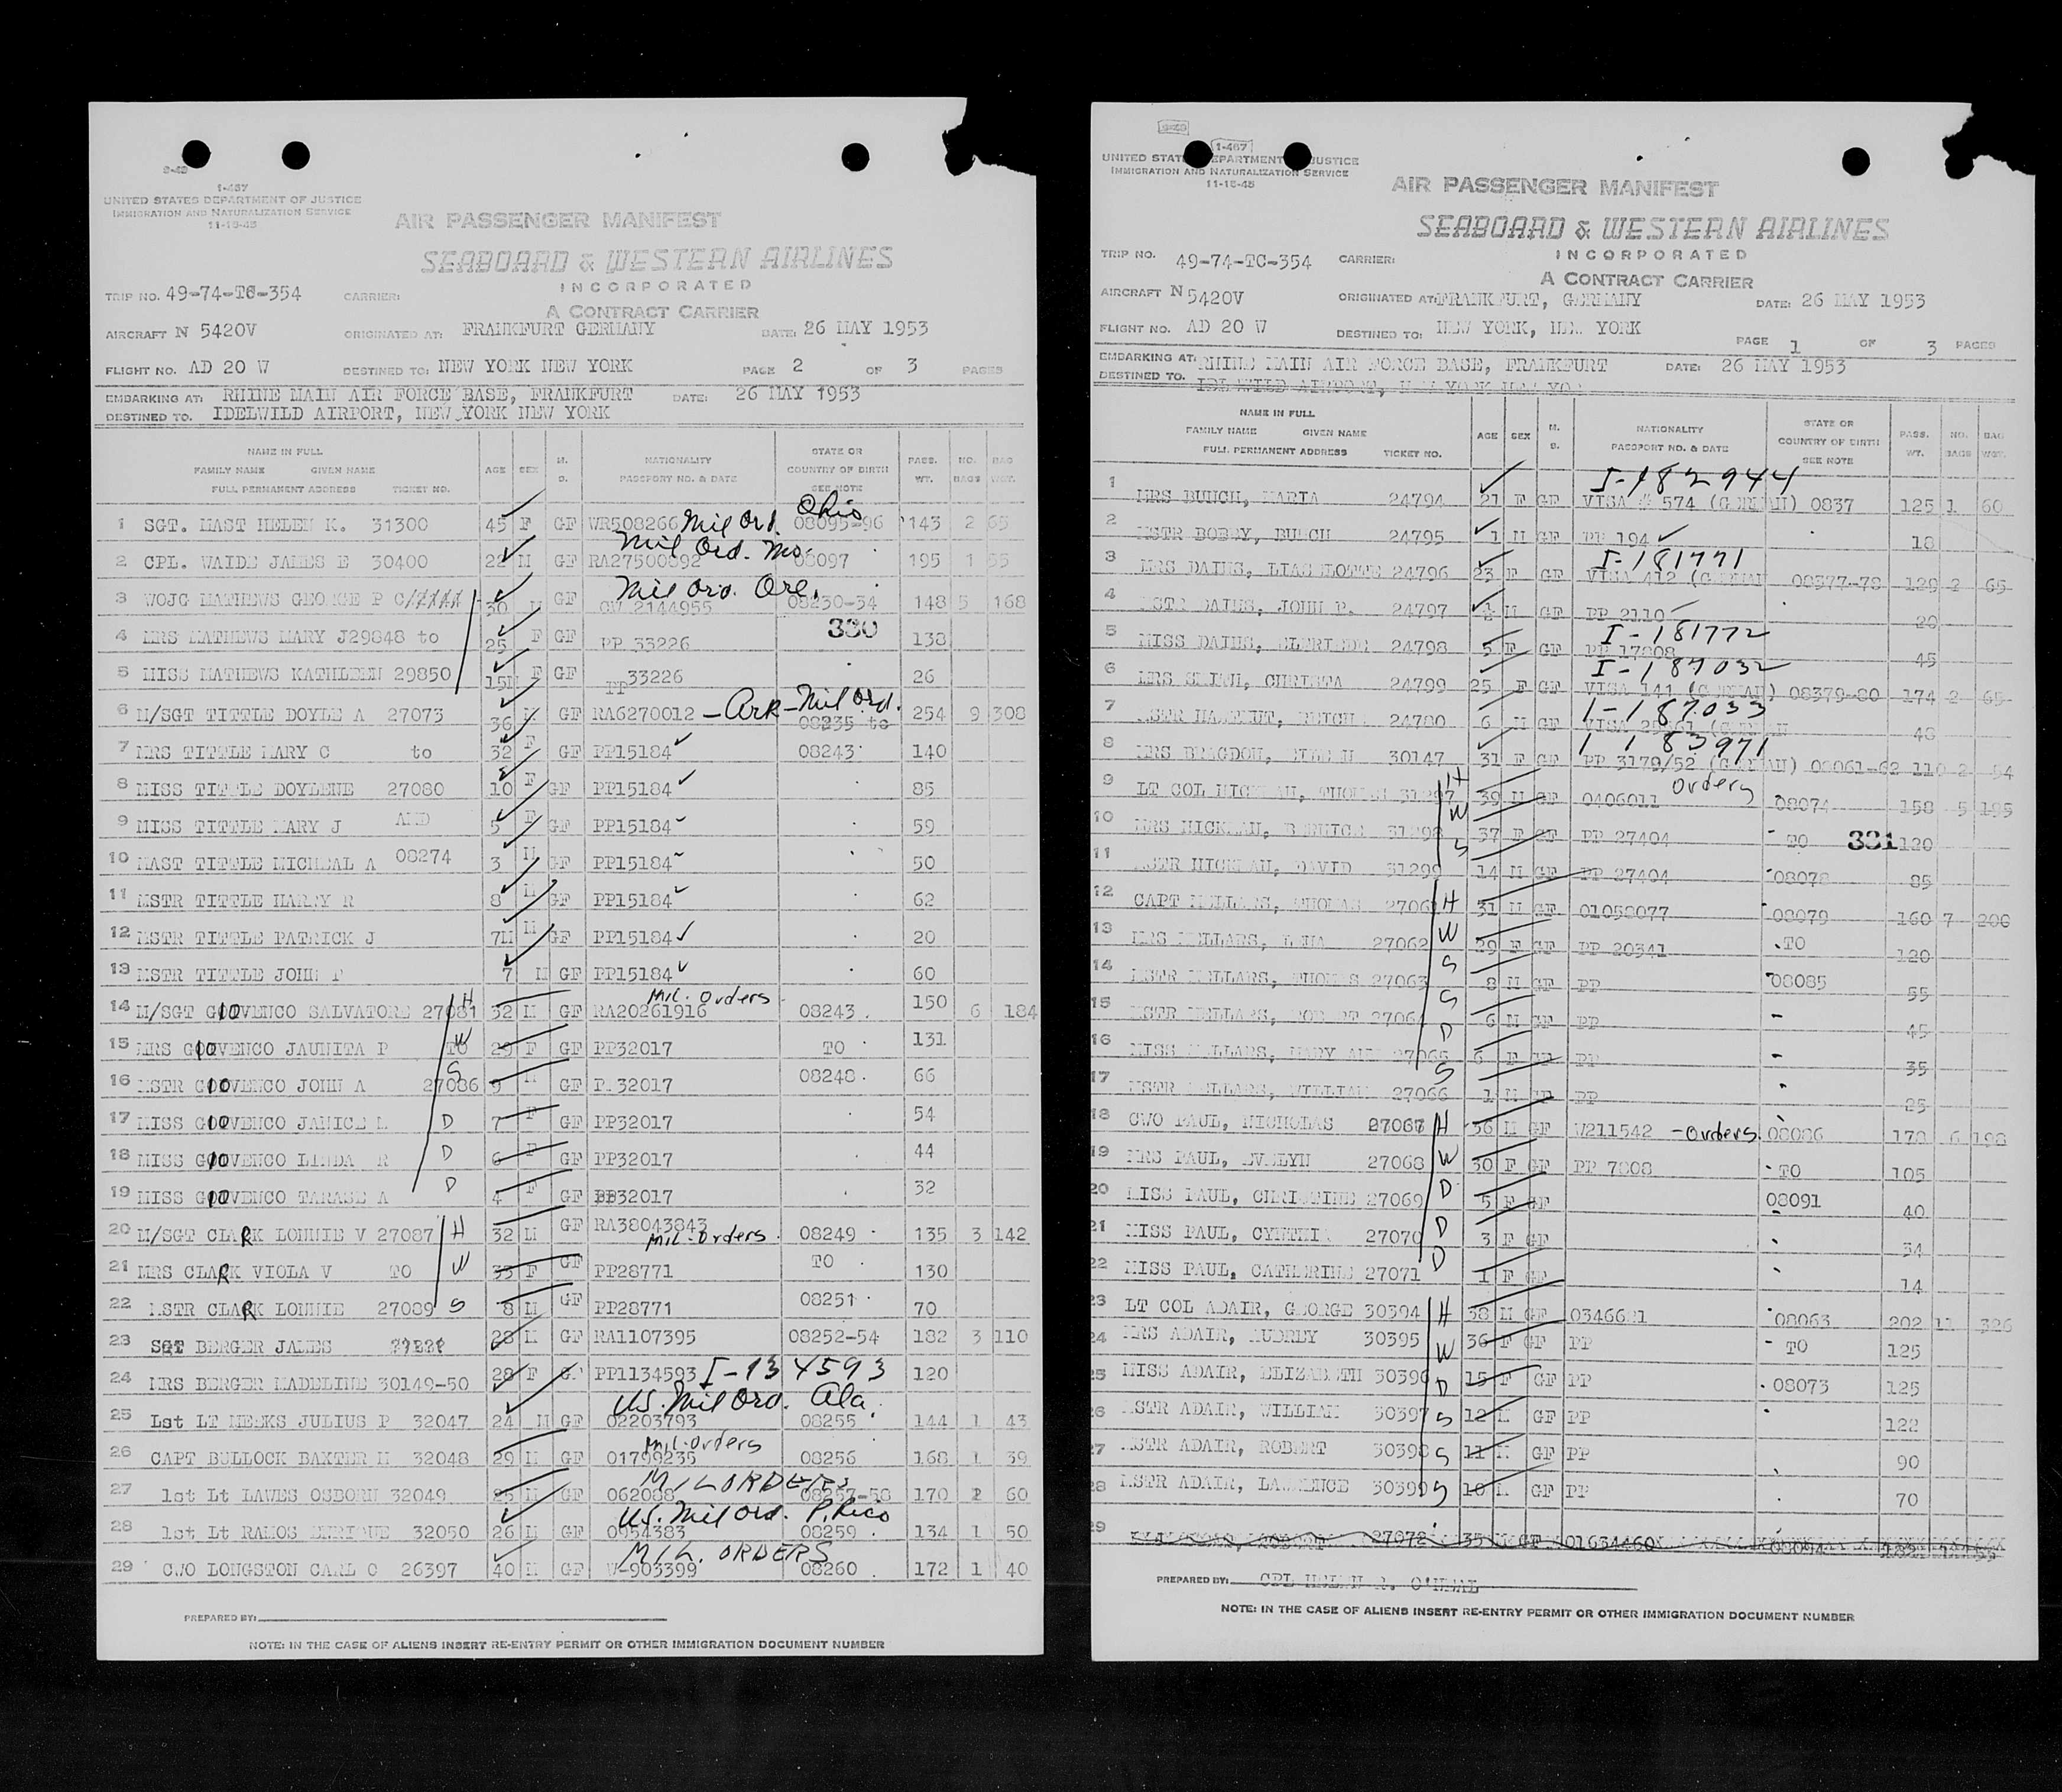 9-49
1-467
UNITED STATES DEPARTMENT OF JUSTICE
IMMIGRATION AND NATURALIZATION SERVICE
11-15-45
AIR PASSENGER MANIFEST
SEABOARD & WESTERN AIRLINES
INCORPORATED
A CONTRACT CARRIER
TRIP NO. 49-74-TC-354 CARRIER:
AIRCRAFT N 5420V ORIGINATED AT: FRANKFURT GERMANY DATE: 26 MAY 1953
FLIGHT NO. AD 20 W DESTINED TO: NEW YORK NEW YORK PAGE 2 OF 3 PAGES
EMBARKING AT: RHINE MAIN AIR FORCE BASE, FRANKFURT DATE: 26 MAY 1953
DESTINED TO. IDELWILD AIRPORT, NEW YORK NEW YORK
NAME IN FULL STATE OR
FAMILY NAME GIVEN NAME AGE SEX M. S. NATIONALITY COUNTRY OF BIRTH PASS. WT. NO. BAGS BAG WGT.
FULL PERMANENT ADDRESS TICKET NO. PASSPORT NO. & DATE SEE NOTE
Ohio
1 SGT. MAST HELEN K. 31300 45 F GF WR508266 Mil Ord 08095-96 143 2 65
Mil Ord. Mo.
2 CPL. WAIDE JAMES E 30400 22 M GF RA27500892 08097 195 1 55
Mil Ord. Ore.
3 WOJG MATHEWS GEORGE P 30 M GF 2144955 08230-34 148 5 168
330
4 MRS MATHEWS MARY J 29848 to 25 F GF PP 33226 138
5 MISS MATHEWS KATHLEEN 29850 15 F GF PP 33226 26
6 M/SGT TITTLE DOYLE A 27073 36 M GF RA6270012 - Ark - Mil Ord. 08235 to 254 9 308
7 MRS TITTLE MARY C to 32 F GF PP15184 08243 140
8 MISS TITTLE DOYLENE 27080 10 F GF PP15184 85
9 MISS TITTLE MARY J AND 5 F GF PP15184 59
10 MAST TITTLE MICHEAL A 08274 3 M GF PP15184 50
11 MSTR TITTLE HARRY R 8 M GF PP15184 62
12 MSTR TITTLE PATRICK J 7M M GF PP15184 20
13 MSTR TITTLE JOHN 7 M GF PP15184 60
Mil. Orders
14 M/SGT GIOVENCO SALVATORE 27081 H 32 M GF RA20261916 08243 150 6 184
15 MRS GIOVENCO JAUNITA P TO W 29 F GF PP32017 TO 131
16 MSTR GIOVENCO JOHN A 27086 S 9 M GF 32017 08248 66
17 MISS GIOVENCO JANICE D 7 F GF PP32017 54
18 MISS GIOVENCO LINDA R D 6 F GF PP32017 44
19 MISS GIOVENCO TARASE A D 4 F GF PP32017 32
20 M/SGT CLARK LONNIE V 27087 H 32 M GF RA38043843 Mil. Orders 08249 135 3 142
21 MRS CLARK VIOLA V TO W 33 F GF PP28771 TO 130
22 MSTR CLARK LONNIE 27089 S 8 M GF PP28771 08251 70
23 SGT BERGER JAMES 28 M GF RA1107395 08252-54 182 3 110
24 MRS BERGER MADELINE 30149-50 28 F GF PP1134593 I-134593 120
US. Mil Ord. Ala.
25 1st LT MEEKS JULIUS P 32047 24 M GF 02203793 08255 144 1 43
Mil. Orders
26 CAPT BULLOCK BAXTER H 32048 29 M GF 01799235 08256 168 1 39
MIL ORDERS
27 1st Lt LAWES OSBORN 32049 25 M GF 062088 08257-58 170 2 60
US. Mil Ord. P. Rico
28 1st Lt RAMOS ENRIQUE 32050 26 M GF 0954383 08259 134 1 50
MIL. ORDERS
29 CWO LONGSTON CARL C 26397 40 M GF W-903399 08260 172 1 40
PREPARED BY:
NOTE: IN THE CASE OF ALIENS INSERT RE-ENTRY PERMIT OR OTHER IMMIGRATION DOCUMENT NUMBER
9-49
1-467
UNITED STATES DEPARTMENT OF JUSTICE
IMMIGRATION AND NATURALIZATION SERVICE
11-15-45
AIR PASSENGER MANIFEST
SEABOARD & WESTERN AIRLINES
INCORPORATED
A CONTRACT CARRIER
TRIP NO. 49-74-TC-354 CARRIER:
AIRCRAFT N 5420V ORIGINATED AT: FRANKFURT, GERMANY DATE: 26 MAY 1953
FLIGHT NO. AD 20 W DESTINED TO: NEW YORK, NEW YORK
PAGE 1 OF 3 PAGES
EMBARKING AT: RHINE MAIN AIR FORCE BASE, FRANKFURT DATE: 26 MAY 1953
DESTINED TO. IDLEWILD AIRPORT, NEW YORK NEW YOR
NAME IN FULL STATE OR
FAMILY NAME GIVEN NAME AGE SEX M. S. NATIONALITY COUNTRY OF BIRTH PASS. WT. NO. BAGS BAG WGT.
FULL PERMANENT ADDRESS TICKET NO. PASSPORT NO. & DATE SEE NOTE
I-182944
1 MRS BUNCH, MARIA 24794 21 F GF VISA # 574 (GERMAN) 0837 125 1 60
2 MSTR BOBBY, BUNCH 24795 1 M GF PP 194 18
I-181771
3 MRS DAINS, LIASELOTTE 24796 23 F GF VISA 412 (GERMAN 08377-78 129 2 65
4 MSTR DAINS, JOHN P. 24797 M GF PP 2110 20
I-181772
5 MISS DAINS, ELFRIEDE 24798 5 F GF PP 17808 45
I-187032
6 MRS SMITH, CHRISTA 24799 25 F GF VISA 141 (GERMAN) 08379-80 174 2 65
I-187033
7 MSTR 24780 6 M GF VISA 48
I 183971
8 MRS BRAGDON, 30147 31 F GF PP 3179/52 (GERMAN) 08061-62 110 2 54
9 LT COL HICKMAN, THOMAS 31297 H 39 M GF 0406011 Orders 08074 158 5 195
10 MRS HICKMAN, BERNICE 31298 W 37 F GF PP 27404 TO 331 120
11 MSTR HICKMAN, DAVID 31299 S 14 M GF PP 27404 08078 85
12 CAPT MELLARS, THOMAS 27061 H 31 M GF 01058077 08079 160 7 200
13 MRS MELLARS, LENA 27062 W 29 F GF PP 20341 TO 120
14 MSTR MELLARS, THOMAS 27063 S 8 M GF PP 08085 55
15 MSTR MELLARS, ROBERT 27064 S 6 M GF PP 45
16 MISS MELLARS, MARY ANN 27065 D 6 F GF PP 35
17 MSTR MELLARS, WILLIAM 27066 S 1 M GF PP 25
18 CWO PAUL, NICHOLAS 27067 H 36 M GF W211542 - Orders 08086 178 6 198
19 MRS PAUL, EVELYN 27068 W 30 F GF PP 7808 TO 105
20 MISS PAUL, CHRISTINE 27069 D 5 F GF 08091 40
21 MISS PAUL, CYNTHIA 27070 D 3 F GF 34
22 MISS PAUL, CATHERINE 27071 D 1 F GF 14
23 LT COL ADAIR, GEORGE 30394 H 38 M GF 0346621 08063 202 11 326
24 MRS ADAIR, AUDREY 30395 W 36 F GF PP TO 125
25 MISS ADAIR, ELIZABETH 30396 D 15 F GF PP 08073 125
26 MSTR ADAIR, WILLIAM 30397 S 12 M GF PP 122
27 MSTR ADAIR, ROBERT 30398 S 11 M GF PP 90
28 MSTR ADAIR, LAWRENCE 30399 S 10 M GF PP 70
29 27072 35 M GF 01634460
PREPARED BY: CPL HELEN R. O'NEAL
NOTE: IN THE CASE OF ALIENS INSERT RE-ENTRY PERMIT OR OTHER IMMIGRATION DOCUMENT NUMBER